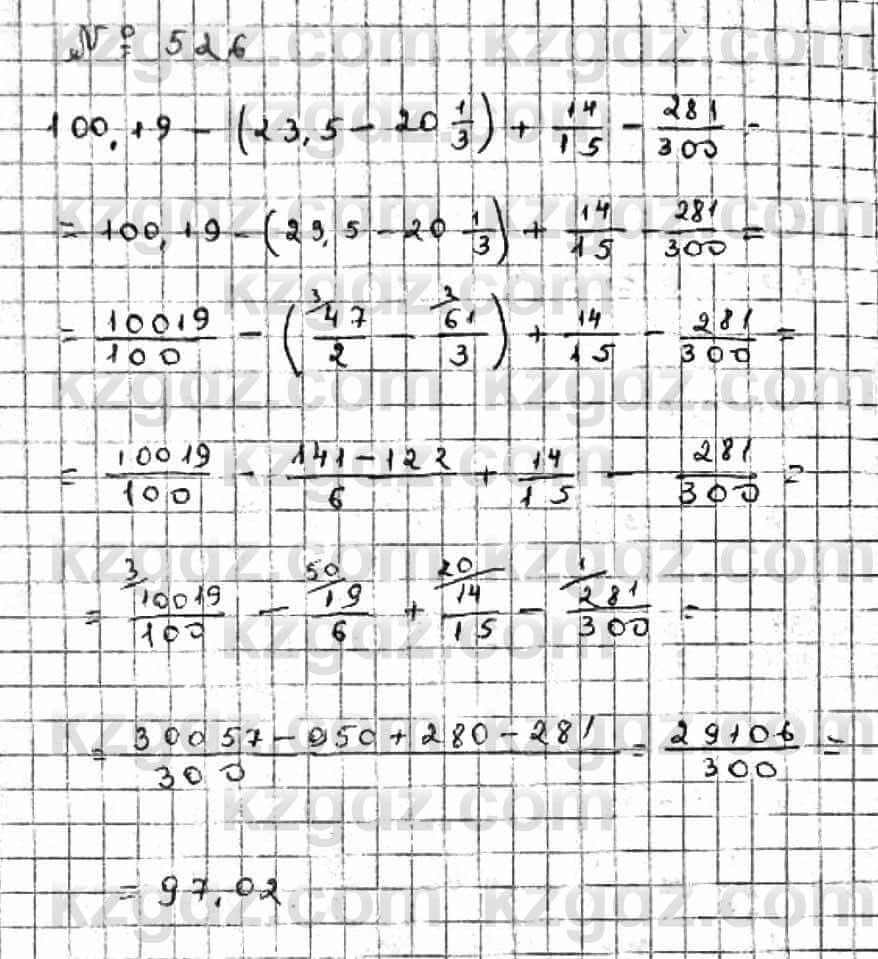 № 526
100,19 - (23,5 - 20 1/3) + 14/15 - 281/300 =
= 100,19 - (23,5 - 20 1/3) + 14/15 - 281/300 =
= 10019/100 - (3/ 47/2 - 2/ 61/3) + 14/15 - 281/300 =
= 10019/100 - (141-122)/6 + 14/15 - 281/300 =
= 3/ 10019/100 - 50/ 19/6 + 20/ 14/15 - 1/ 281/300 =
= (30057 - 950 + 280 - 281)/300 = 29106/300 =
= 97,02
kzgdz.com